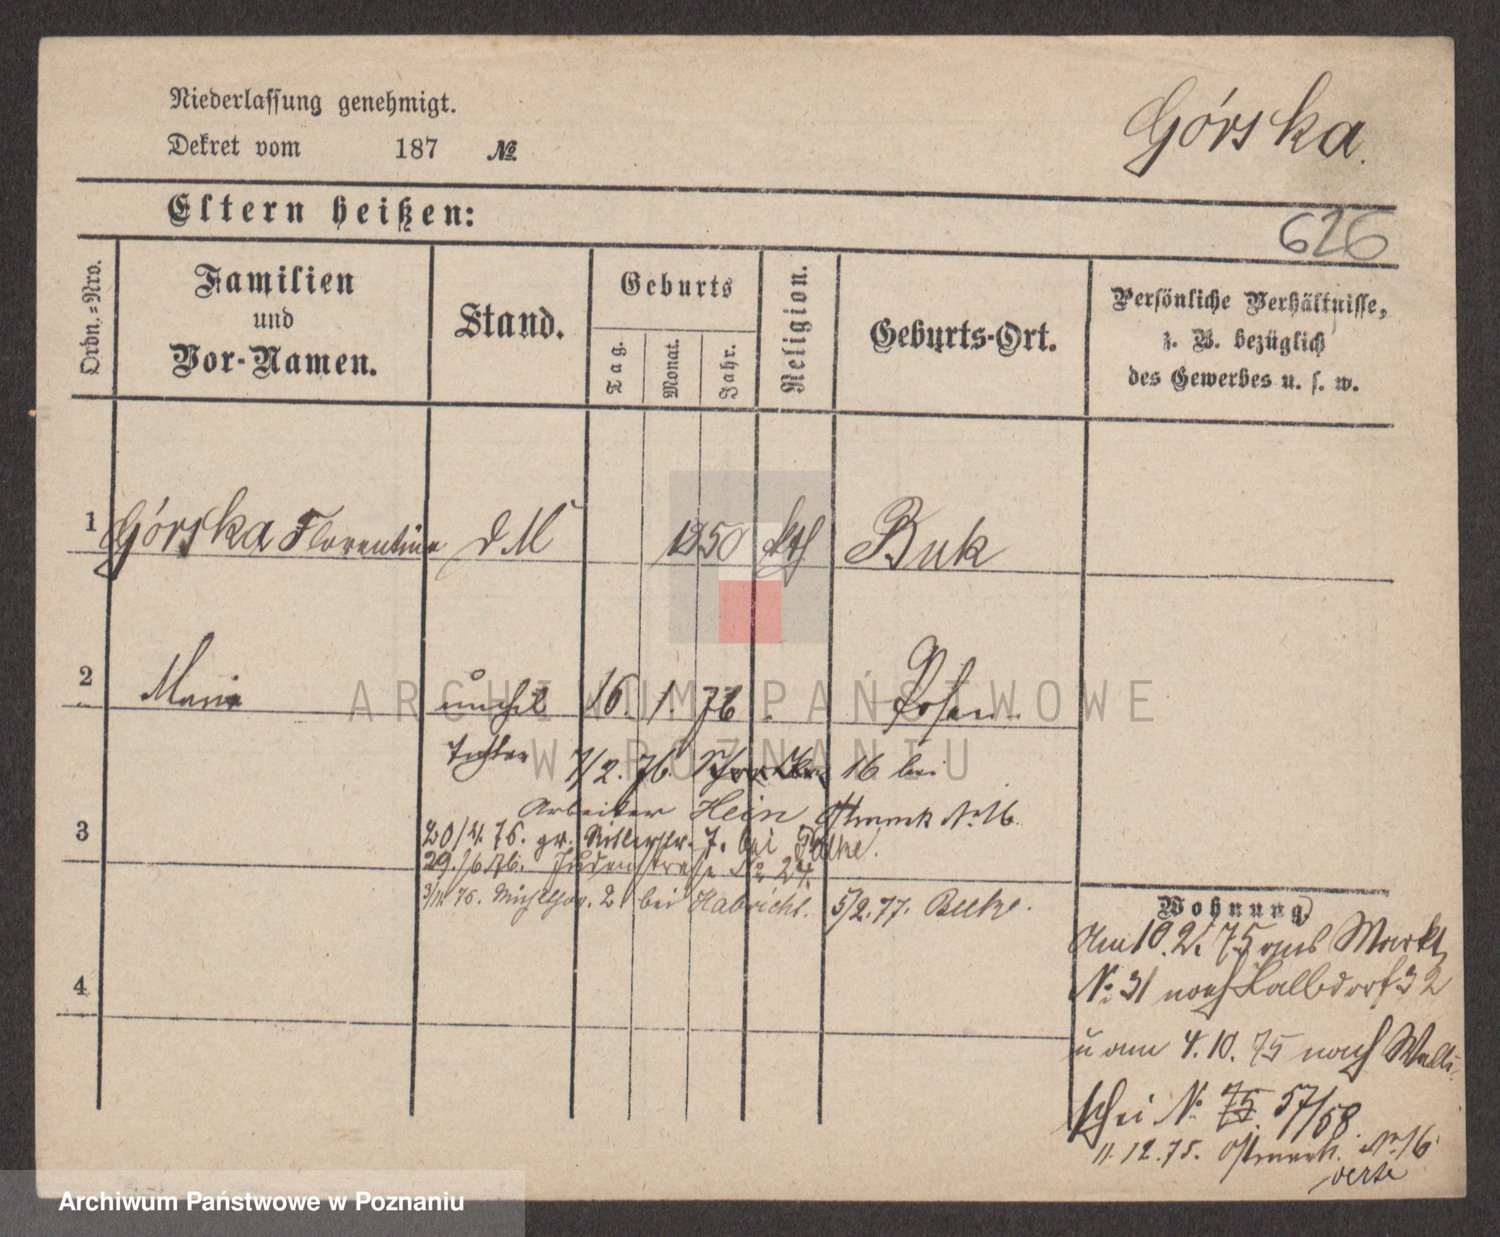 Niederlassung genehmigt.
Dekret vom 187 №
Górska.
Eltern heißen:
626
Ordn.-Nro.
Familien
und
Vor-Namen.
Stand.
Geburts
Tag.
Monat.
Jahr.
Religion.
Geburts-Ort.
Persönliche Verhältnisse,
z. B. bezüglich
des Gewerbes u. s. w.
1 Górska Florentine d M 1850 kth Buk
2 Maria unehel 16. 1. 76. Posen.
Tochter 7/2. 76. 16 bei
Arbeiter Hein Ostrowek No 16.
3
20/4. 76. gr. Ritterstr. 7. bei
29./6 76. Judenstrasse No 27.
3/11. 76. Mühlstr. 2. bei Habricht. 5/2. 77. Buk.
Wohnung
Am 10. 2. 75 aus Markt
No 31 nach 32
4
u am 4. 10. 75 nach Walli-
schei No 75 57/58
11. 12. 75. Ostrowek. No 16
verte
ARCHIWUM PAŃSTWOWE
W POZNANIU
Archiwum Państwowe w Poznaniu